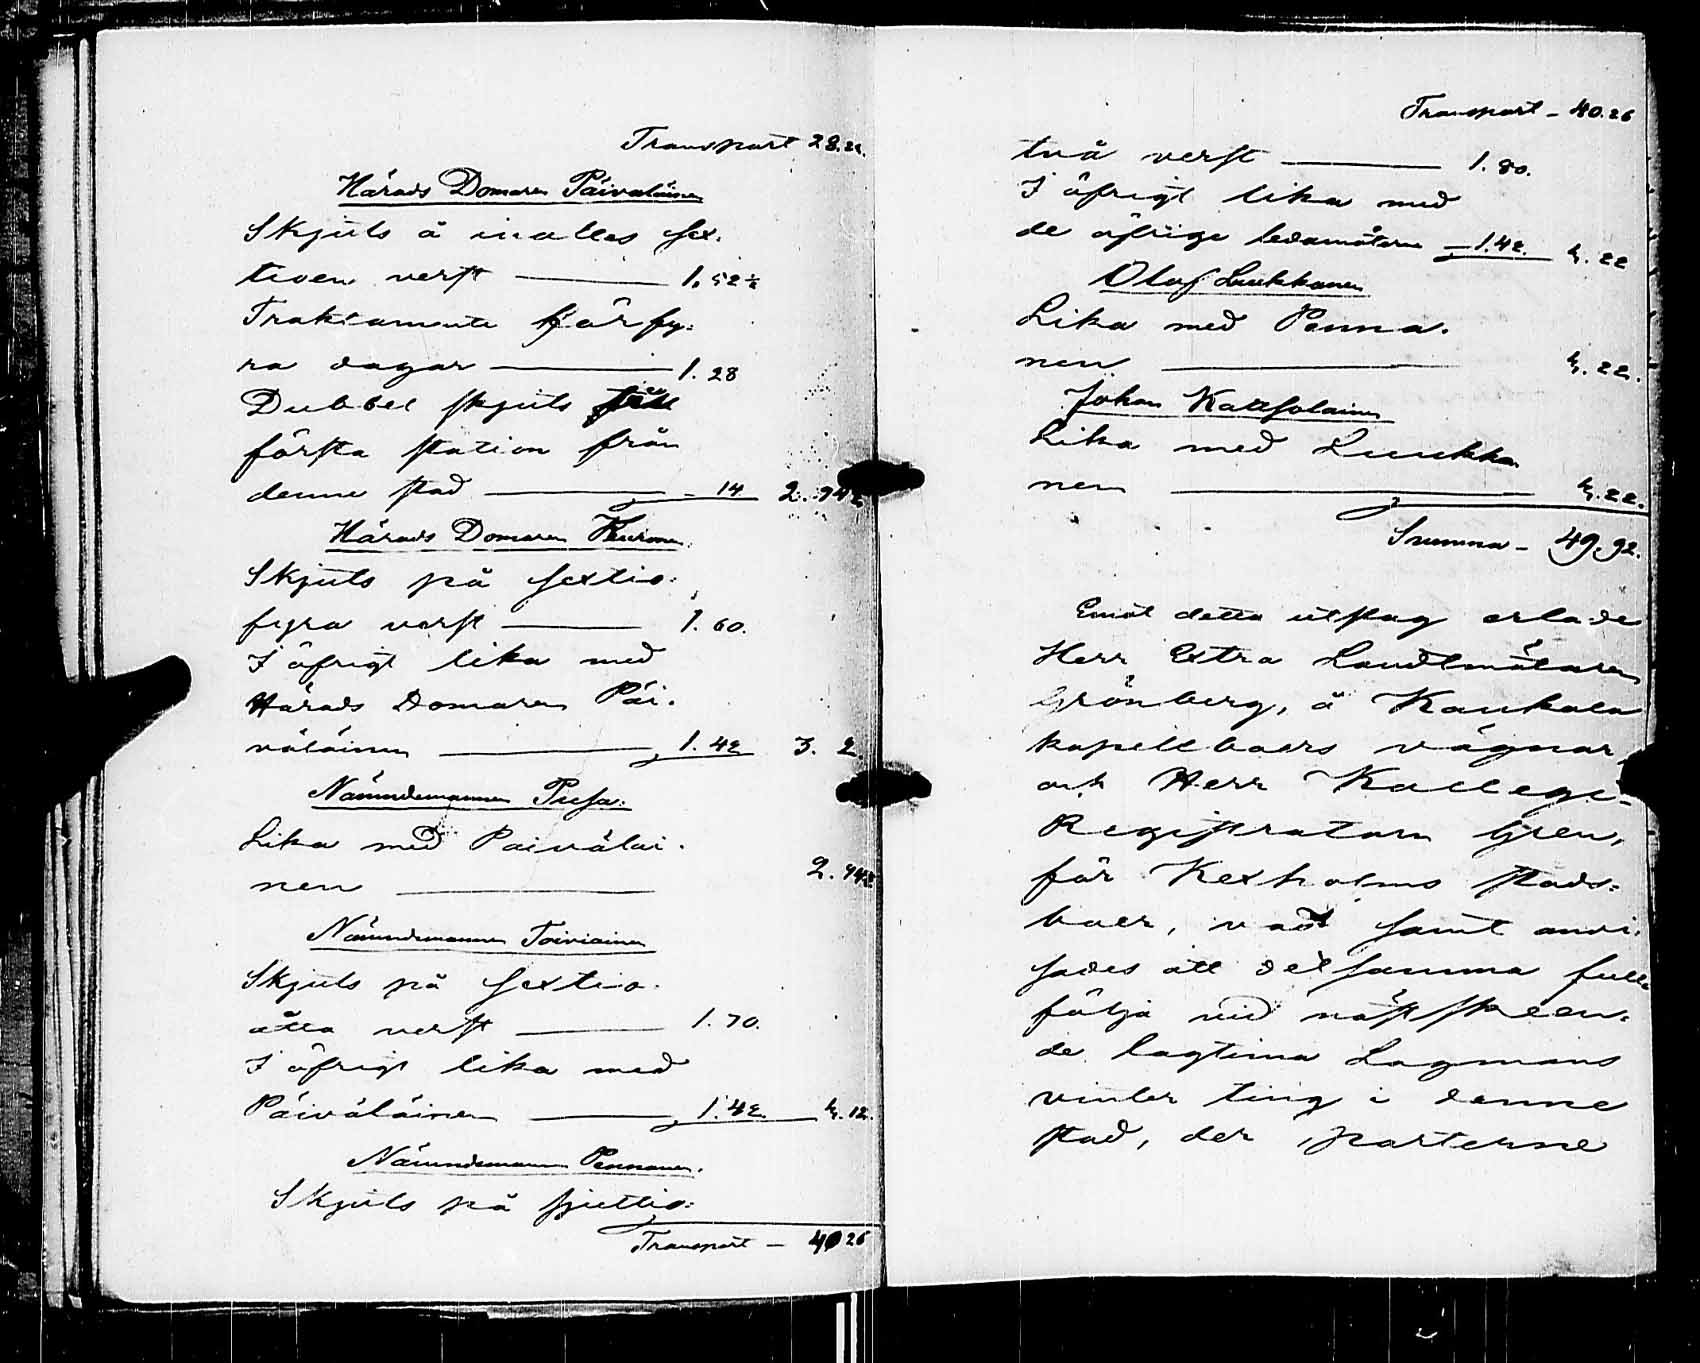 Transport 28.21.
Härads Domaren Päiväläinen
Skjuts å inalles sex-
tioen verst — 1.52½
Traktamente för fy-
ra dagar — 1.28
Dubbel skjuts
första station från
denne stad — 14 2.94½
Härads Domaren Kuronen.
Skjuts på sextio-
fyra verst — 1.60.
I öfrigt lika med
Härads Domaren Päi-
väläinen — 1.42 3. 2
Nämndemannen Pusa.
Lika med Paivälai-
nen — 2.94½
Nämndemannen Toiviainen
Skjuts på sextio-
åtta verst — 1.70.
I öfrigt lika med
Päiväläinen — 1.42. 3.12.
Nämndemannen Pennanen.
Skjuts på sjuttio-
Transport — 40 26
Transport — 40.26
två verst — 1.80.
I öfrigt lika med
de öfrige ledamöterne — 1.42. 3.22
Olof Luukkonen
Lika med Penna-
nen — 3.22.
Johan Kausolainen
Lika med Luukko-
nen — 3.22.
Summa — 49.92.
Emot detta utslag erlade
Herr Extra Landtmätaren
Grönberg, å Kaukola
kapellboers vägnar,
och Herr Kollegi-
Registratorn Gren,
för Kexholms stads-
boer, vad samt anvi-
sades att detsamma full-
följa vid nästskeen-
de lagtima Lagmans
vinter ting i denne
stad, der parterne